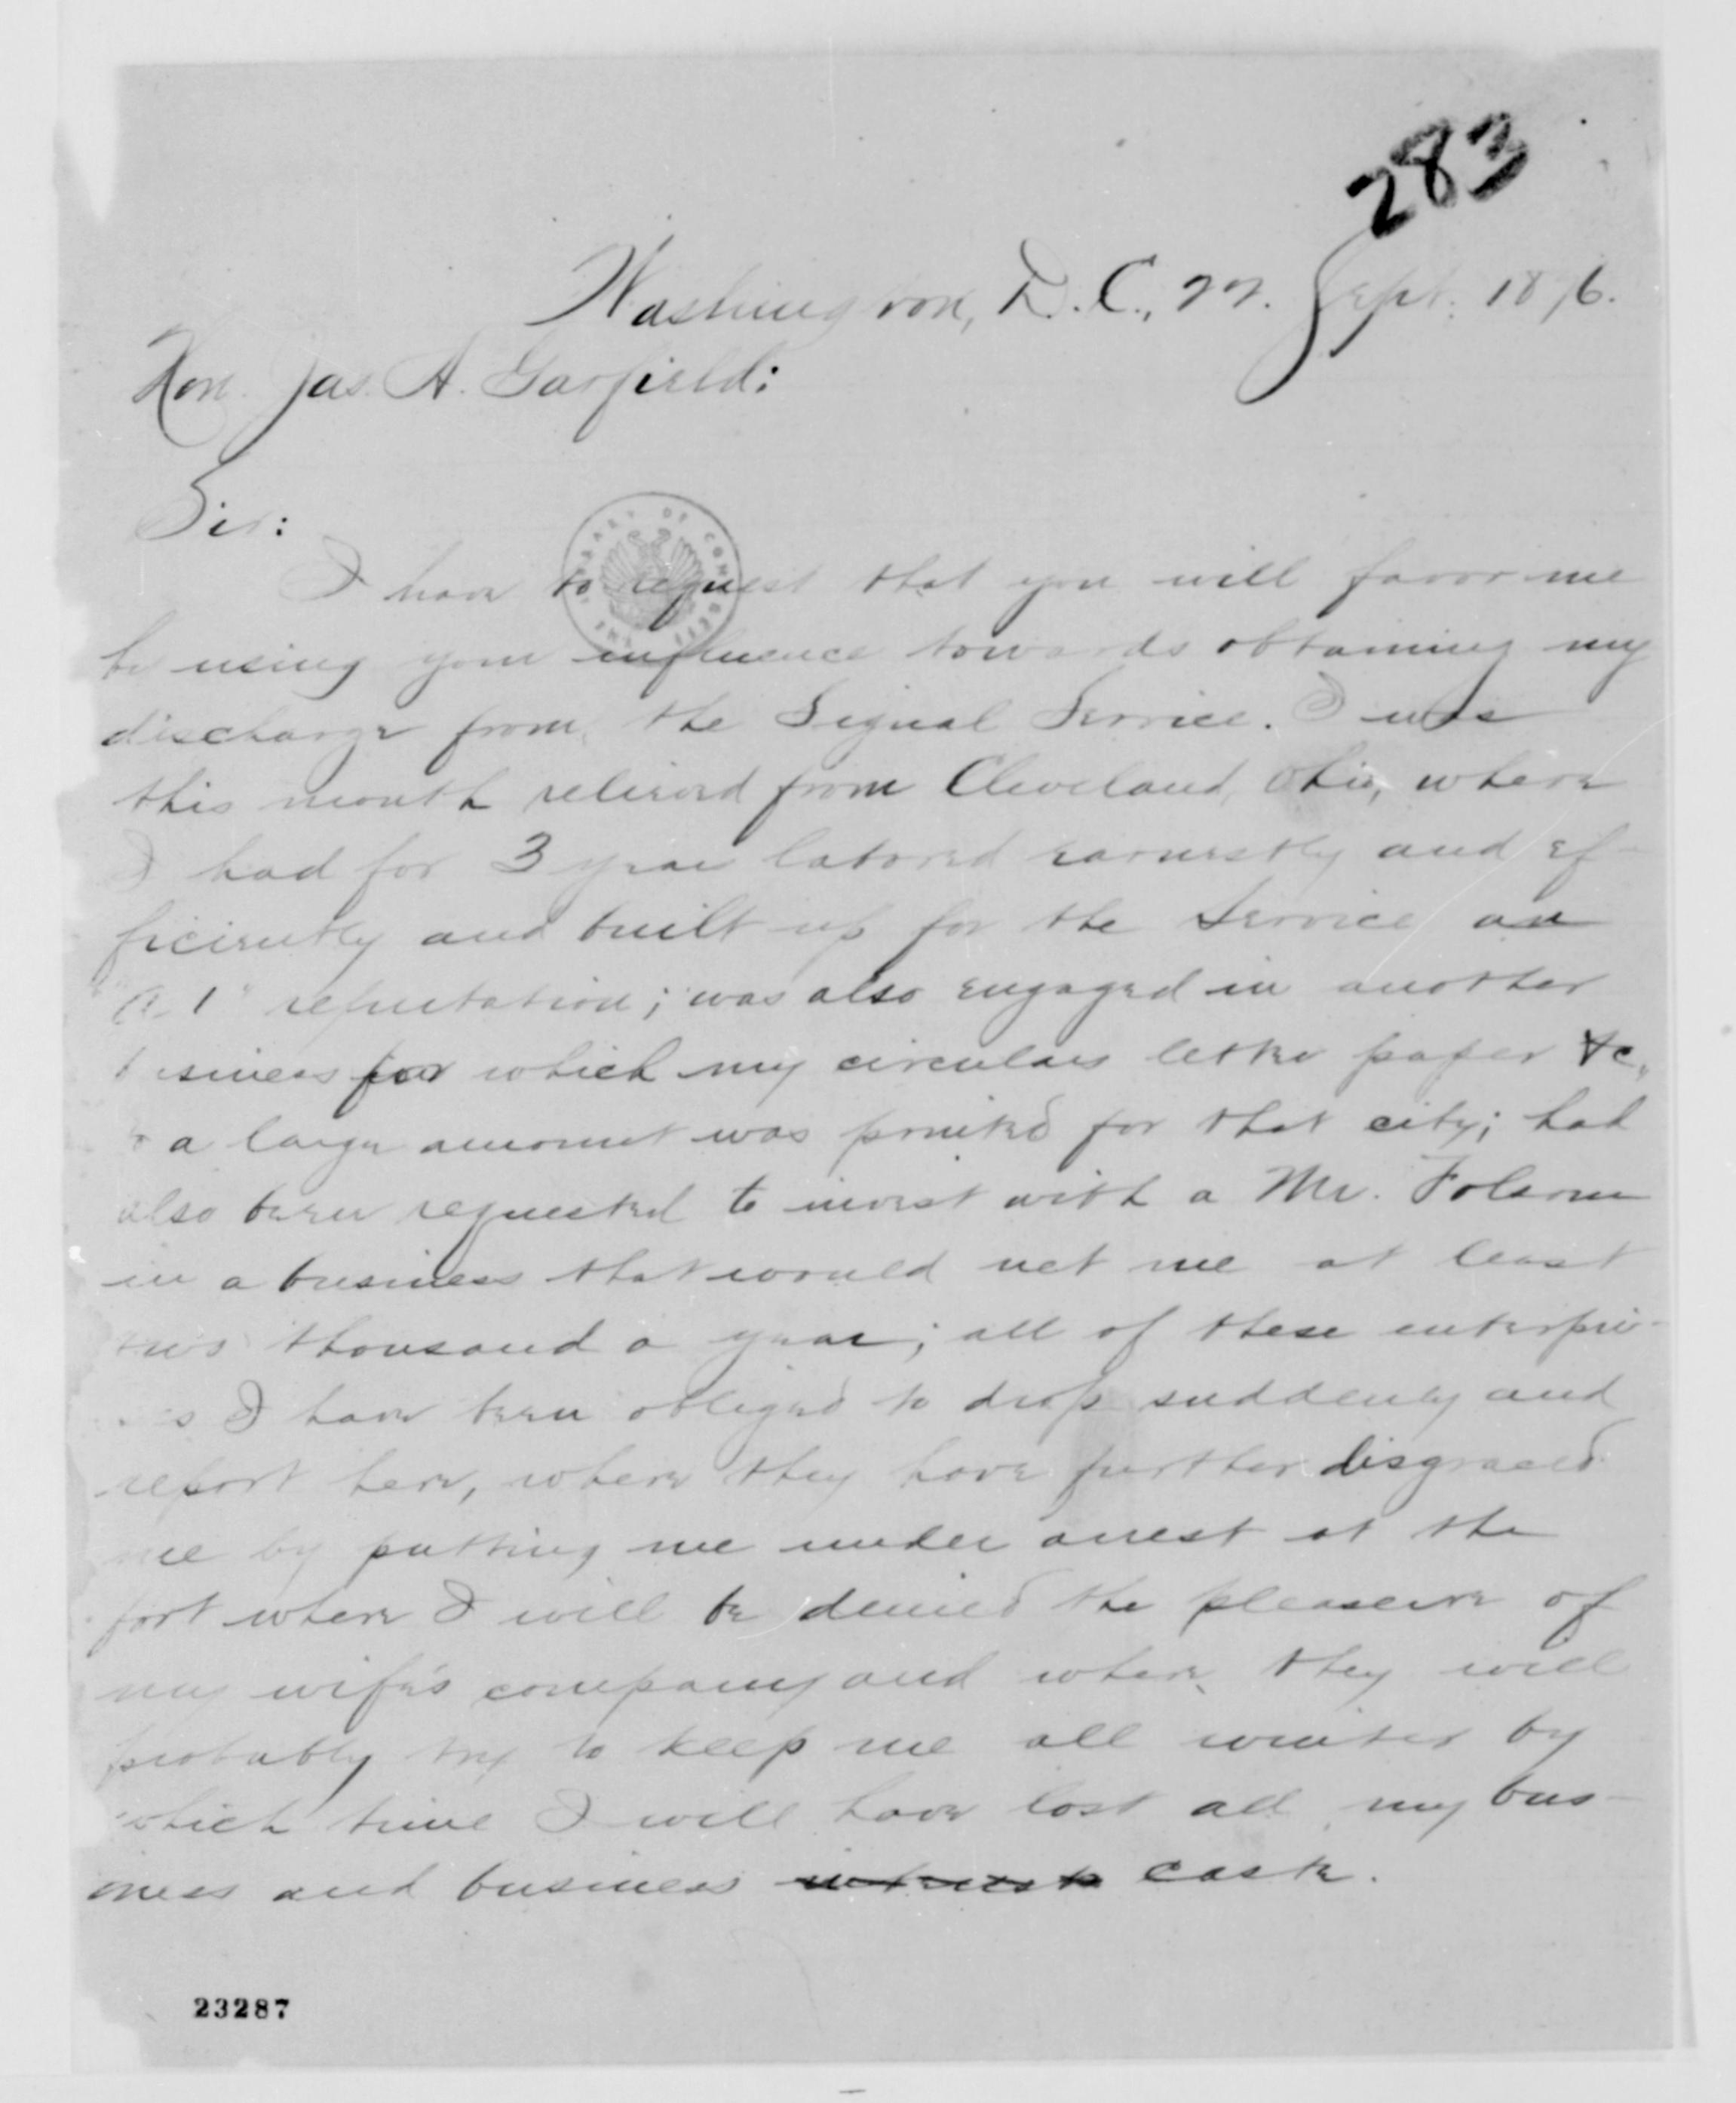 283
Washington, D.C., 22. Sept. 1876.
Hon. Jas. A. Garfield:
Sir:
I have to request that you will favor me
by using your influence towards obtaining my
discharge from the Signal Service. I was
this month relieved from Cleveland, Ohio, where
I had for 3 year labored earnestly and ef-
ficiently and built up for the Service an
"A-1" reputation; was also engaged in another
usiness for which my circulars letter paper &c,
a large amount was printed for that city; had
also been requested to invest with a Mr. Folsom
in a business that would net me at least
two thousand a year; all of these enterpris-
s I have been obliged to drop suddenly and
report here, where they have further disgraced
me by putting me under arrest at the
fort where I will be denied the pleasure of
my wife's company and where they will
probably try to keep me all winter by
which time I will have lost all my bus-
iness and business interests caste.
23287
LIBRARY OF CONGRESS